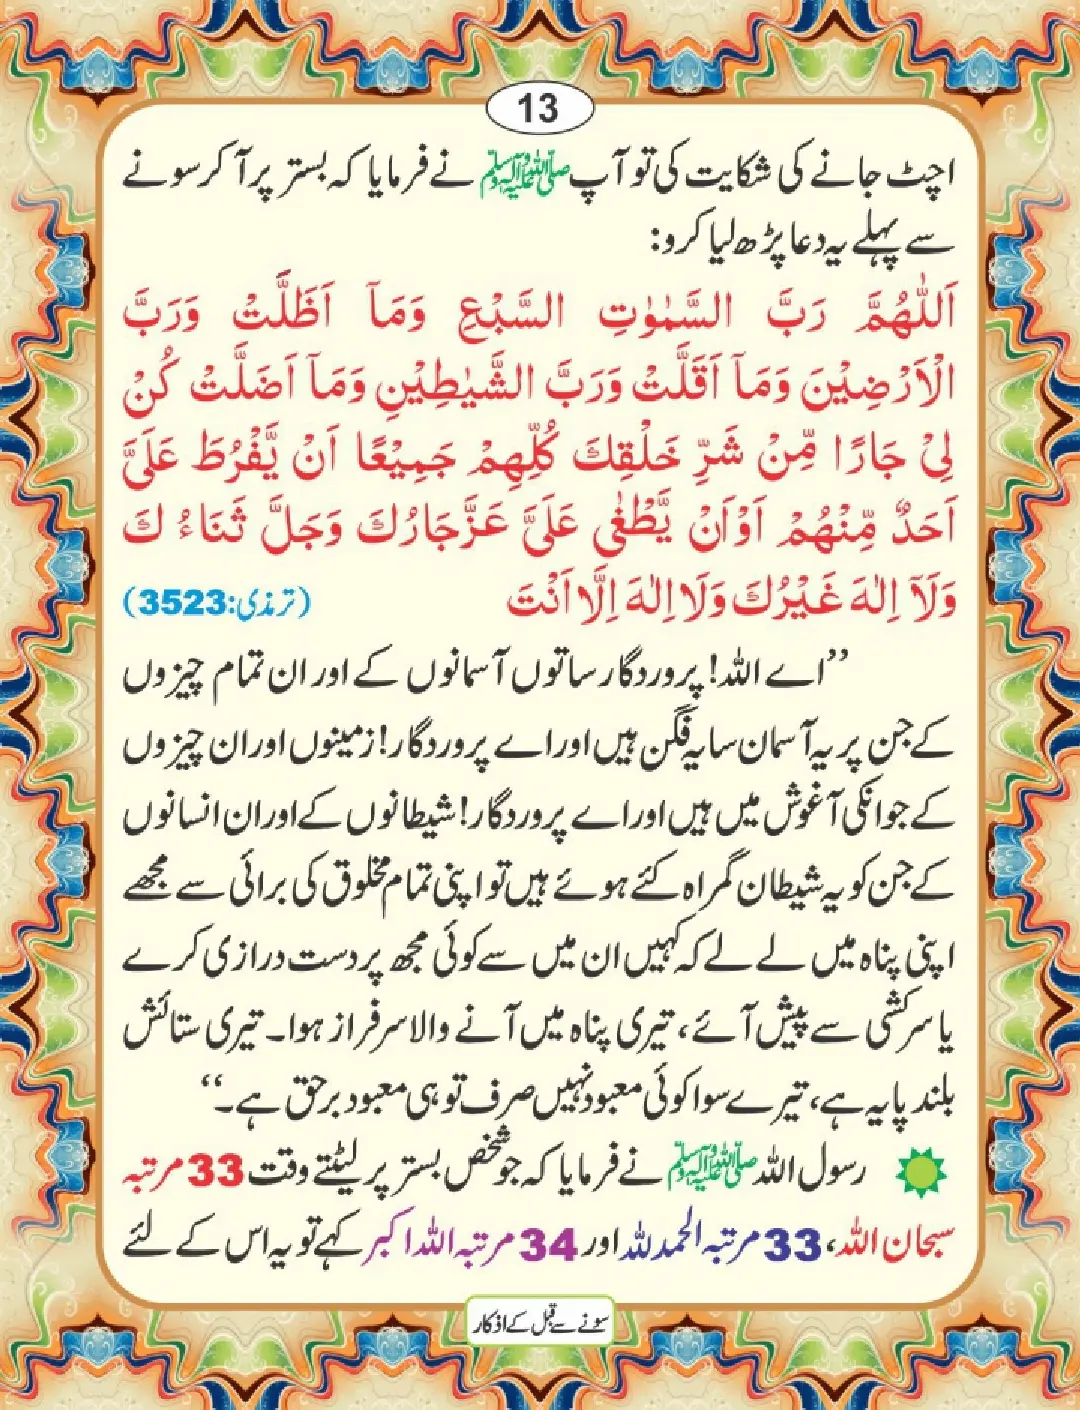 13
اچٹ جانے کی شکایت کی تو آپ صلی اللہ علیہ وآلہ وسلم نے فرمایا کہ بستر پر آ کر سونے
سے پہلے یہ دعا پڑھ لیا کرو:
اَللّٰهُمَّ رَبَّ السَّمٰوٰتِ السَّبْعِ وَمَآ اَظَلَّتْ وَرَبَّ
الْاَرْضِيْنَ وَمَآ اَقَلَّتْ وَرَبَّ الشَّيٰطِيْنِ وَمَآ اَضَلَّتْ كُنْ
لِيْ جَارًا مِّنْ شَرِّ خَلْقِكَ كُلِّهِمْ جَمِيْعًا اَنْ يَّفْرُطَ عَلَيَّ
اَحَدٌ مِّنْهُمْ اَوْاَنْ يَّطْغٰى عَلَيَّ عَزَّجَارُكَ وَجَلَّ ثَنَاءُ كَ
وَلَآ اِلٰهَ غَيْرُكَ وَلَا اِلٰهَ اِلَّا اَنْتَ (ترمذی:3523)
”اے اللہ! پروردگار ساتوں آسمانوں کے اور ان تمام چیزوں
کے جن پر یہ آسمان سایہ فگن ہیں اور اے پروردگار! زمینوں اور ان چیزوں
کے جو انکی آغوش میں ہیں اور اے پروردگار! شیطانوں کے اور ان انسانوں
کے جن کو یہ شیطان گمراہ کئے ہوئے ہیں تو اپنی تمام مخلوق کی برائی سے مجھے
اپنی پناہ میں لے لے کہ کہیں ان میں سے کوئی مجھ پر دست درازی کرے
یا سرکشی سے پیش آئے، تیری پناہ میں آنے والا سرفراز ہوا۔ تیری ستائش
بلند پایہ ہے، تیرے سوا کوئی معبود نہیں صرف تو ہی معبود برحق ہے۔“
رسول اللہ صلی اللہ علیہ وآلہ وسلم نے فرمایا کہ جو شخص بستر پر لیٹتے وقت 33 مرتبہ
سبحان اللہ، 33 مرتبہ الحمدللہ اور 34 مرتبہ اللہ اکبر کہے تو یہ اس کے لئے
سونے سے قبل کے اذکار